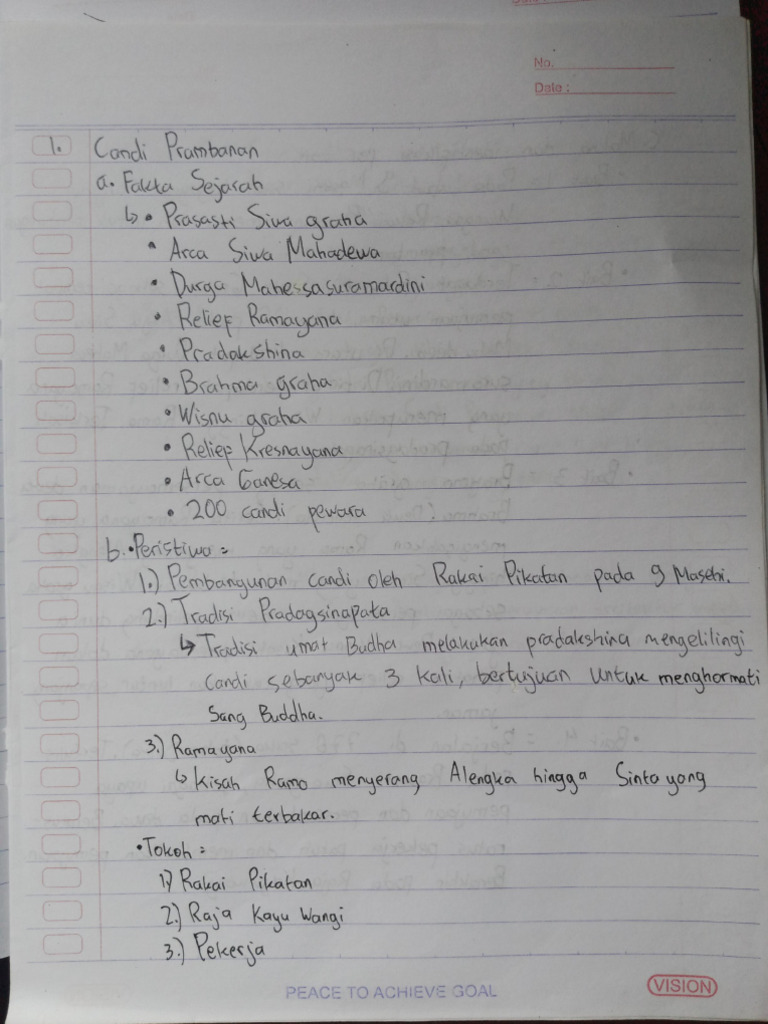 No.
Date :
1. Candi Prambanan
a. Fakta Sejarah
↳ • Prasasti Siwa graha
• Arca Siwa Mahadewa
• Durga Mahessasuramardini
• Relief Ramayana
• Pradakshina
• Brahma graha
• Wisnu graha
• Relief Kresnayana
• Arca Ganesa
• 200 candi pewara
b. • Peristiwa =
1.) Pembangunan candi oleh Rakai Pikatan pada 9 Masehi.
2.) Tradisi Pradagsinapata
↳ Tradisi umat Budha melakukan pradakshina mengelilingi
candi sebanyak 3 kali, bertujuan untuk menghormati
Sang Buddha.
3.) Ramayana
↳ Kisah Rama menyerang Alengka hingga Sinta yang
mati terbakar.
• Tokoh =
1.) Rakai Pikatan
2.) Raja Kayu Wangi
3.) Pekerja
PEACE TO ACHIEVE GOAL
VISION